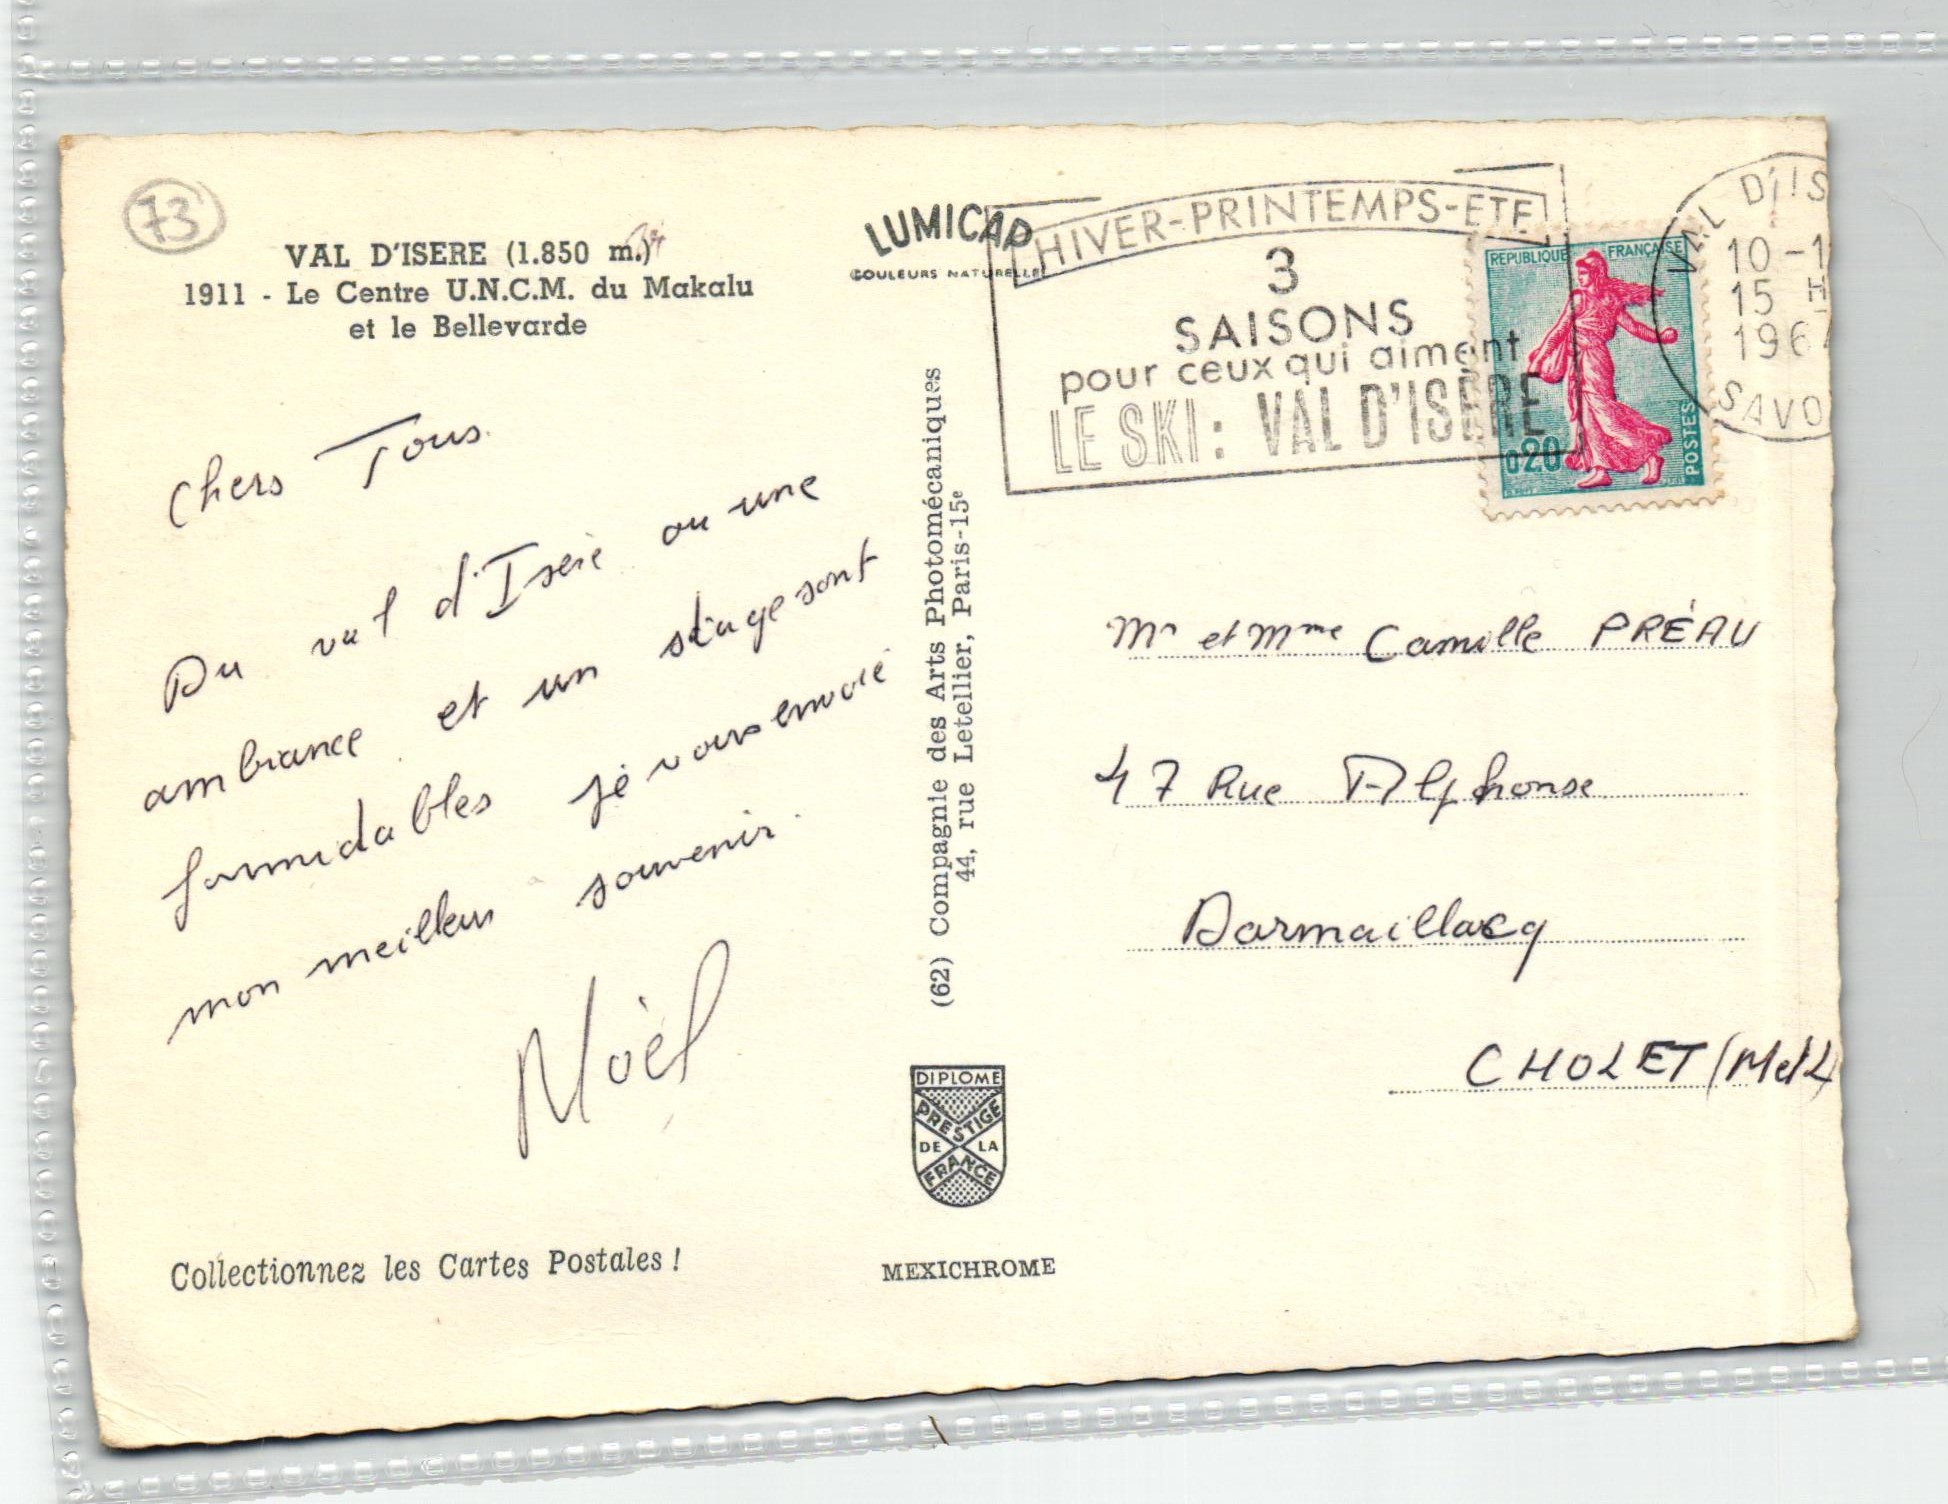 73
VAL D'ISERE (1.850 m.)
1911 - Le Centre U.N.C.M. du Makalu
et le Bellevarde
Chers Tous.
Du val d'Isère ou une
ambiance et un stage sont
formidables je vous envoie
mon meilleur souvenir.
Noèl
Collectionnez les Cartes Postales !
LUMICAP
COULEURS NATURELLES
(62) Compagnie des Arts Photomécaniques
44, rue Letellier, Paris-15e
DIPLOME
PRESTIGE
DE LA
FRANCE
MEXICHROME
HIVER-PRINTEMPS-ETE
3
SAISONS
pour ceux qui aiment
LE SKI: VAL D'ISÈRE
REPUBLIQUE FRANÇAISE
0,20
POSTES
VAL D'IS
10 - 1
15 H
196
SAVO
Mr et Mme Camille PRÉAU
47 Rue Alphonse
Darmaillacq
CHOLET (MetL